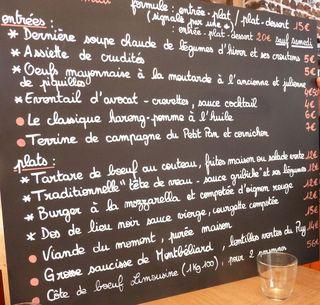 formule : entrée-plat / plat-dessert 15€
(signalée par une *)
entrée-plat-dessert 20€ sauf samedi
entrées :
* Dernière soupe chaude de légumes d'hiver et ses croutons 5€
* Assiette de crudités 5€
* Oeufs mayonnaise à la moutarde à l'ancienne et julienne
de piquillos
* Eventail d'avocat - crevettes, sauce cocktail 4€
• Le classique hareng-pomme à l'huile 6€
• Terrine de campagne du Petit Pan et cornichon 7€
plats :
* Tartare de boeuf au couteau, frites maison ou salade verte 12€
* Traditionnelle "tête de veau - sauce gribiche" et ses légumes 12€
* Burger à la mozzarella et compotée d'oignon rouge 12€
* Dos de lieu noir sauce vierge, courgette compotée
• Viande du moment, purée maison
• Grosse saucisse de Montbéliard, lentilles vertes du Puy 14€
• Côte de boeuf Limousine (1kg100), pour 2 56€